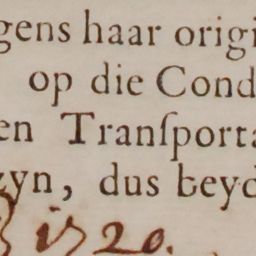 gens haar origi
op die Cond
en Tranſporta
zyn, dus beyd
is 20.